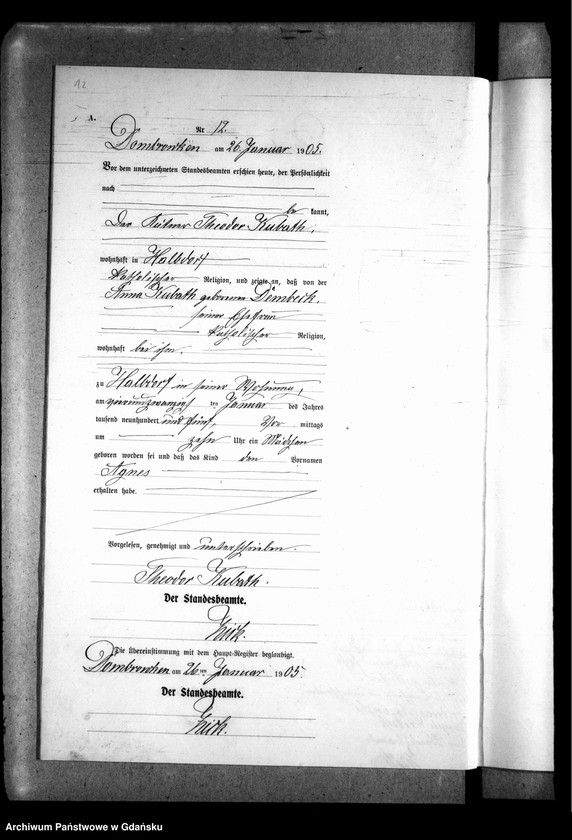 12
A.
Nr 12.
Dombrowken am 26. Januar 1905.
Vor dem unterzeichneten Standesbeamten erschien heute, der Persönlichkeit
nach
be kannt,
Der Kätner Theodor Kubath,
wohnhaft in Halbdorf
katholischer Religion, und zeigte an, daß von der
Anna Kubath geborenen Dembeck,
seiner Ehefrau
katholischer Religion,
wohnhaft bei ihm.
zu Halbdorf in seiner Wohnung,
am vierundzwanzigsten Januar des Jahres
tausend neunhundert und fünf, Vor mittags
um zehn Uhr ein Mädchen
geboren worden sei und daß das Kind den Vornamen
Agnes
erhalten habe.
Vorgelesen, genehmigt und unterschrieben.
Theodor Kubath.
Der Standesbeamte.
Die Übereinstimmung mit dem Haupt-Register beglaubigt.
Dombrowken am 26ten Januar 1905.
Der Standesbeamte.
Archiwum Państwowe w Gdańsku